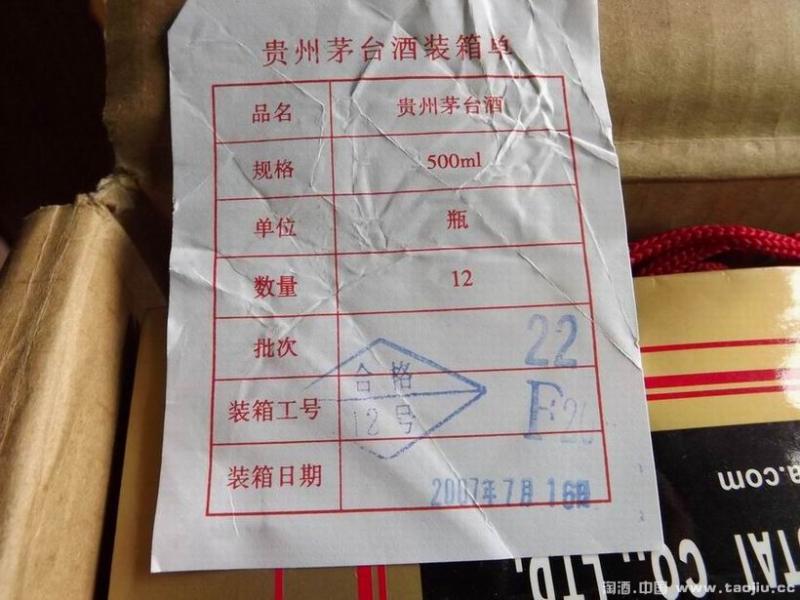 贵州茅台酒装箱单
品名 贵州茅台酒
规格 500ml
单位 瓶
数量 12
批次 22
合格
装箱工号 12号 F20
装箱日期 2007年7月16日
a.com
TAI CO., LTD.
淘酒.中国 www.taojiu.cc